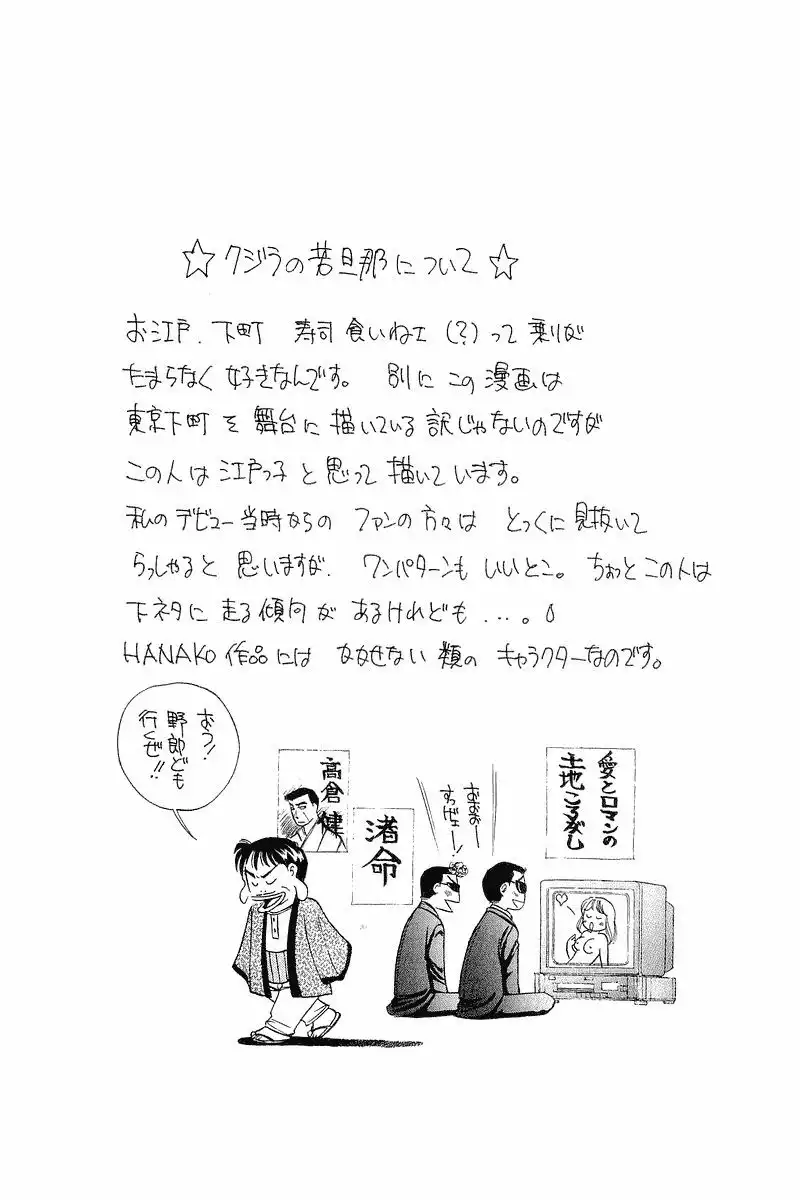 ☆クジラの若旦那について☆
お江戸、下町 寿司食いねェ(?)って乗りが
たまらなく好きなんです。 別にこの漫画は
東京下町を舞台に描いている訳じゃないのですが
この人は江戸っ子と思って描いています。
私のデビュー当時からのファンの方々は とっくに見抜いて
らっしゃると思いますが、ワンパターンもいいとこ。ちょっとこの人は
下ネタに走る傾向があるけれども…。
HANAKO作品には かかせない類の キャラクターなのです。
おう!
野郎ども
行くぜ!!
高倉健
渚命
おおおー
すっげェー!!
愛とロマンの
土地ころがし